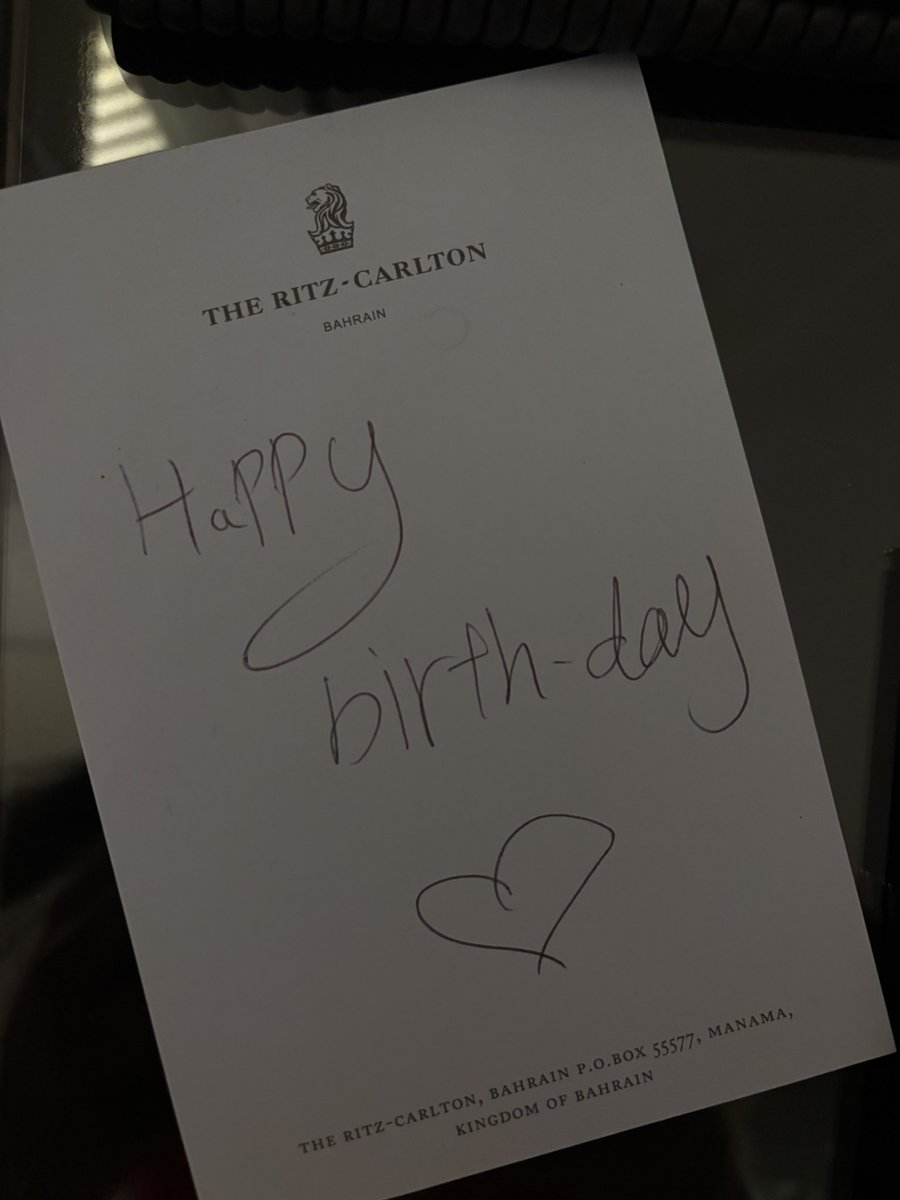 THE RITZ-CARLTON
BAHRAIN
Happy
birth-day
THE RITZ-CARLTON, BAHRAIN P.O.BOX 55577, MANAMA,
KINGDOM OF BAHRAIN